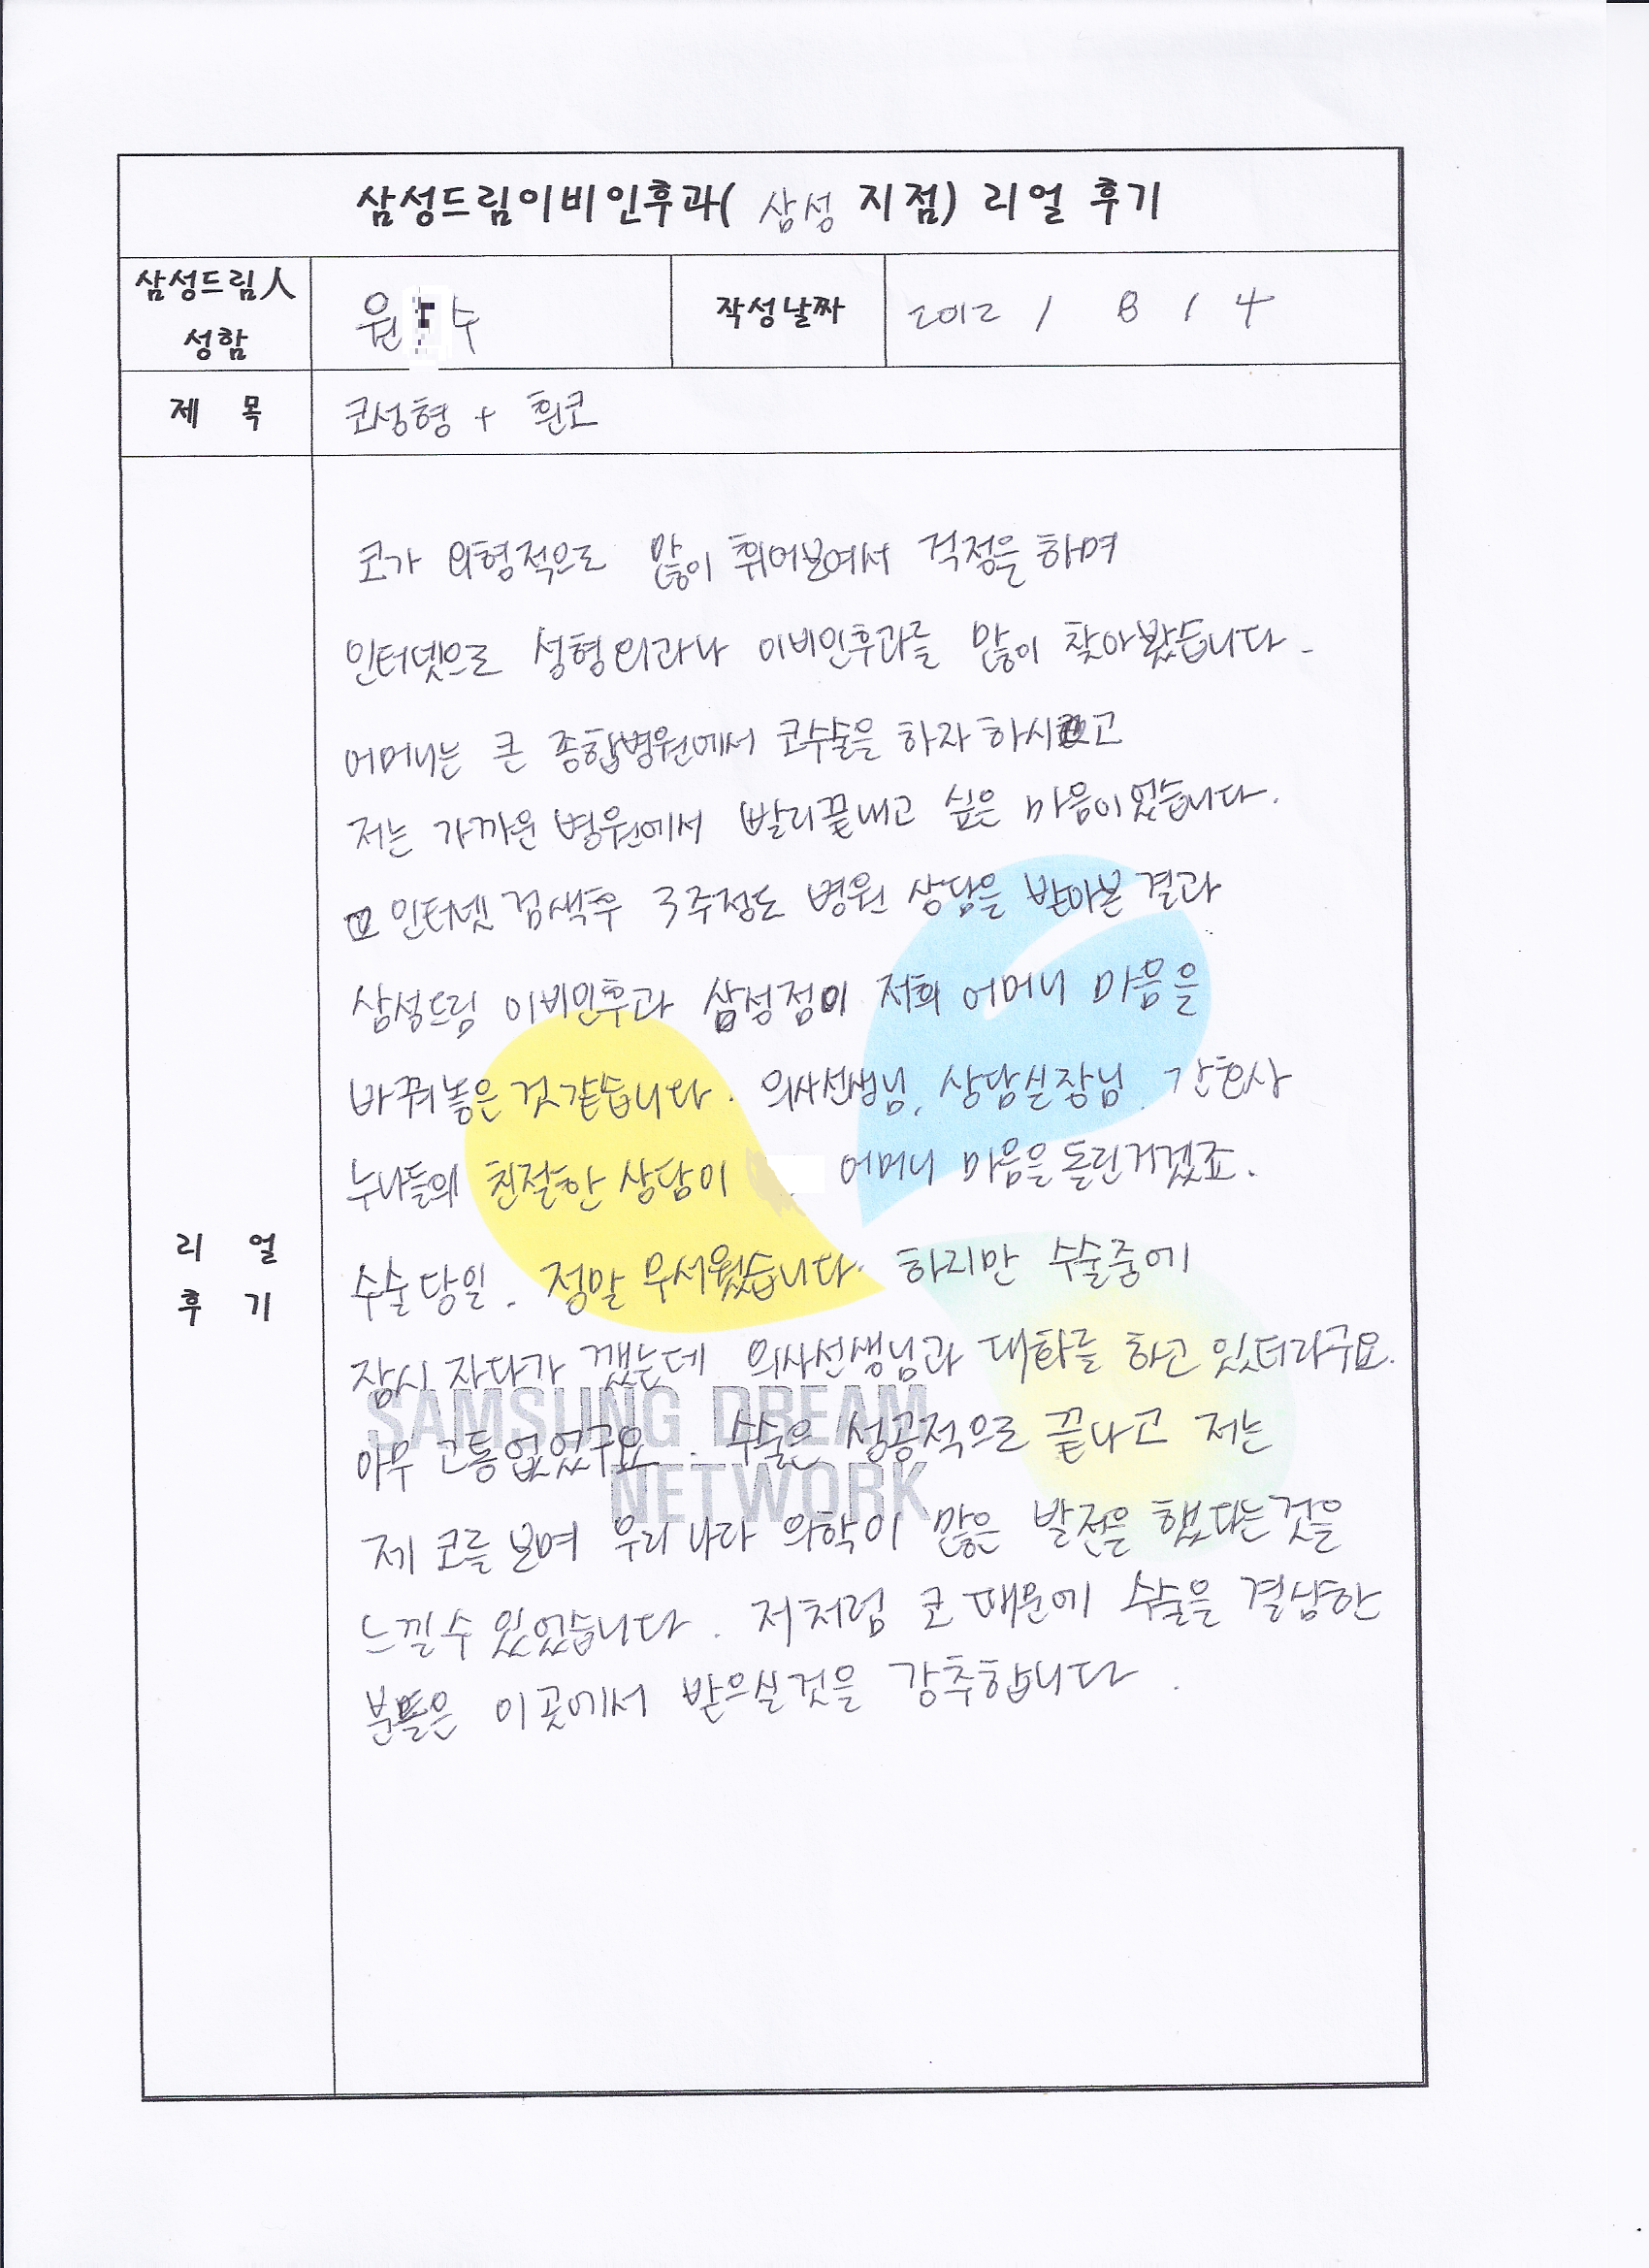 삼성드림이비인후과( 삼성 지점) 리얼 후기
삼성드림人
성함
원 수
작성날짜
2012 / 8 / 4
제 목
코성형 + 휜코
코가 외형적으로 많이 휘어보여서 걱정을 하며
인터넷으로 성형외과나 이비인후과를 많이 찾아봤습니다.
어머니는 큰 종합병원에서 코수술을 하자 하시고
저는 가까운 병원에서 빨리끝내고 싶은 마음이었습니다.
인터넷 검색후 3주정도 병원 상담을 받아본 결과
삼성드림 이비인후과 삼성점이 저희 어머니 마음을
바꿔놓은 것같습니다. 의사선생님, 상담실장님, 간호사
누나들의 친절한 상담이 어머니 마음을 돌린거겠죠.
리 얼
후 기
수술당일. 정말 무서웠습니다. 하지만 수술중에
잠시 자다가 깼는데 의사선생님과 대화를 하고 있더라구요.
SAMSUNG DREAM
아무 고통없었구요. 수술은 성공적으로 끝나고 저는
NETWORK
제 코를 보며 우리나라 의학이 많은 발전을 했다는것을
느낄수 있었습니다. 저처럼 코 때문에 수술을 결심한
분들은 이곳에서 받으실것을 강추합니다.